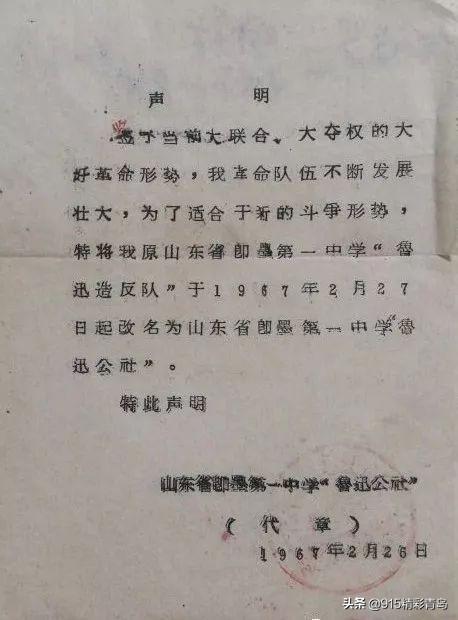 声 明
鉴于当前大联合、大夺权的大
好革命形势，我革命队伍不断发展
壮大，为了适合于新的斗争形势，
特将我原山东省卽墨第一中学“鲁
迅造反队”于1967年2月27
日起改名为山东省卽墨第一中学“鲁
迅公社”。
特此声明
山东省卽墨第一中学“鲁迅公社”
（代章）
1967年2月26日
头条 @915精彩青岛